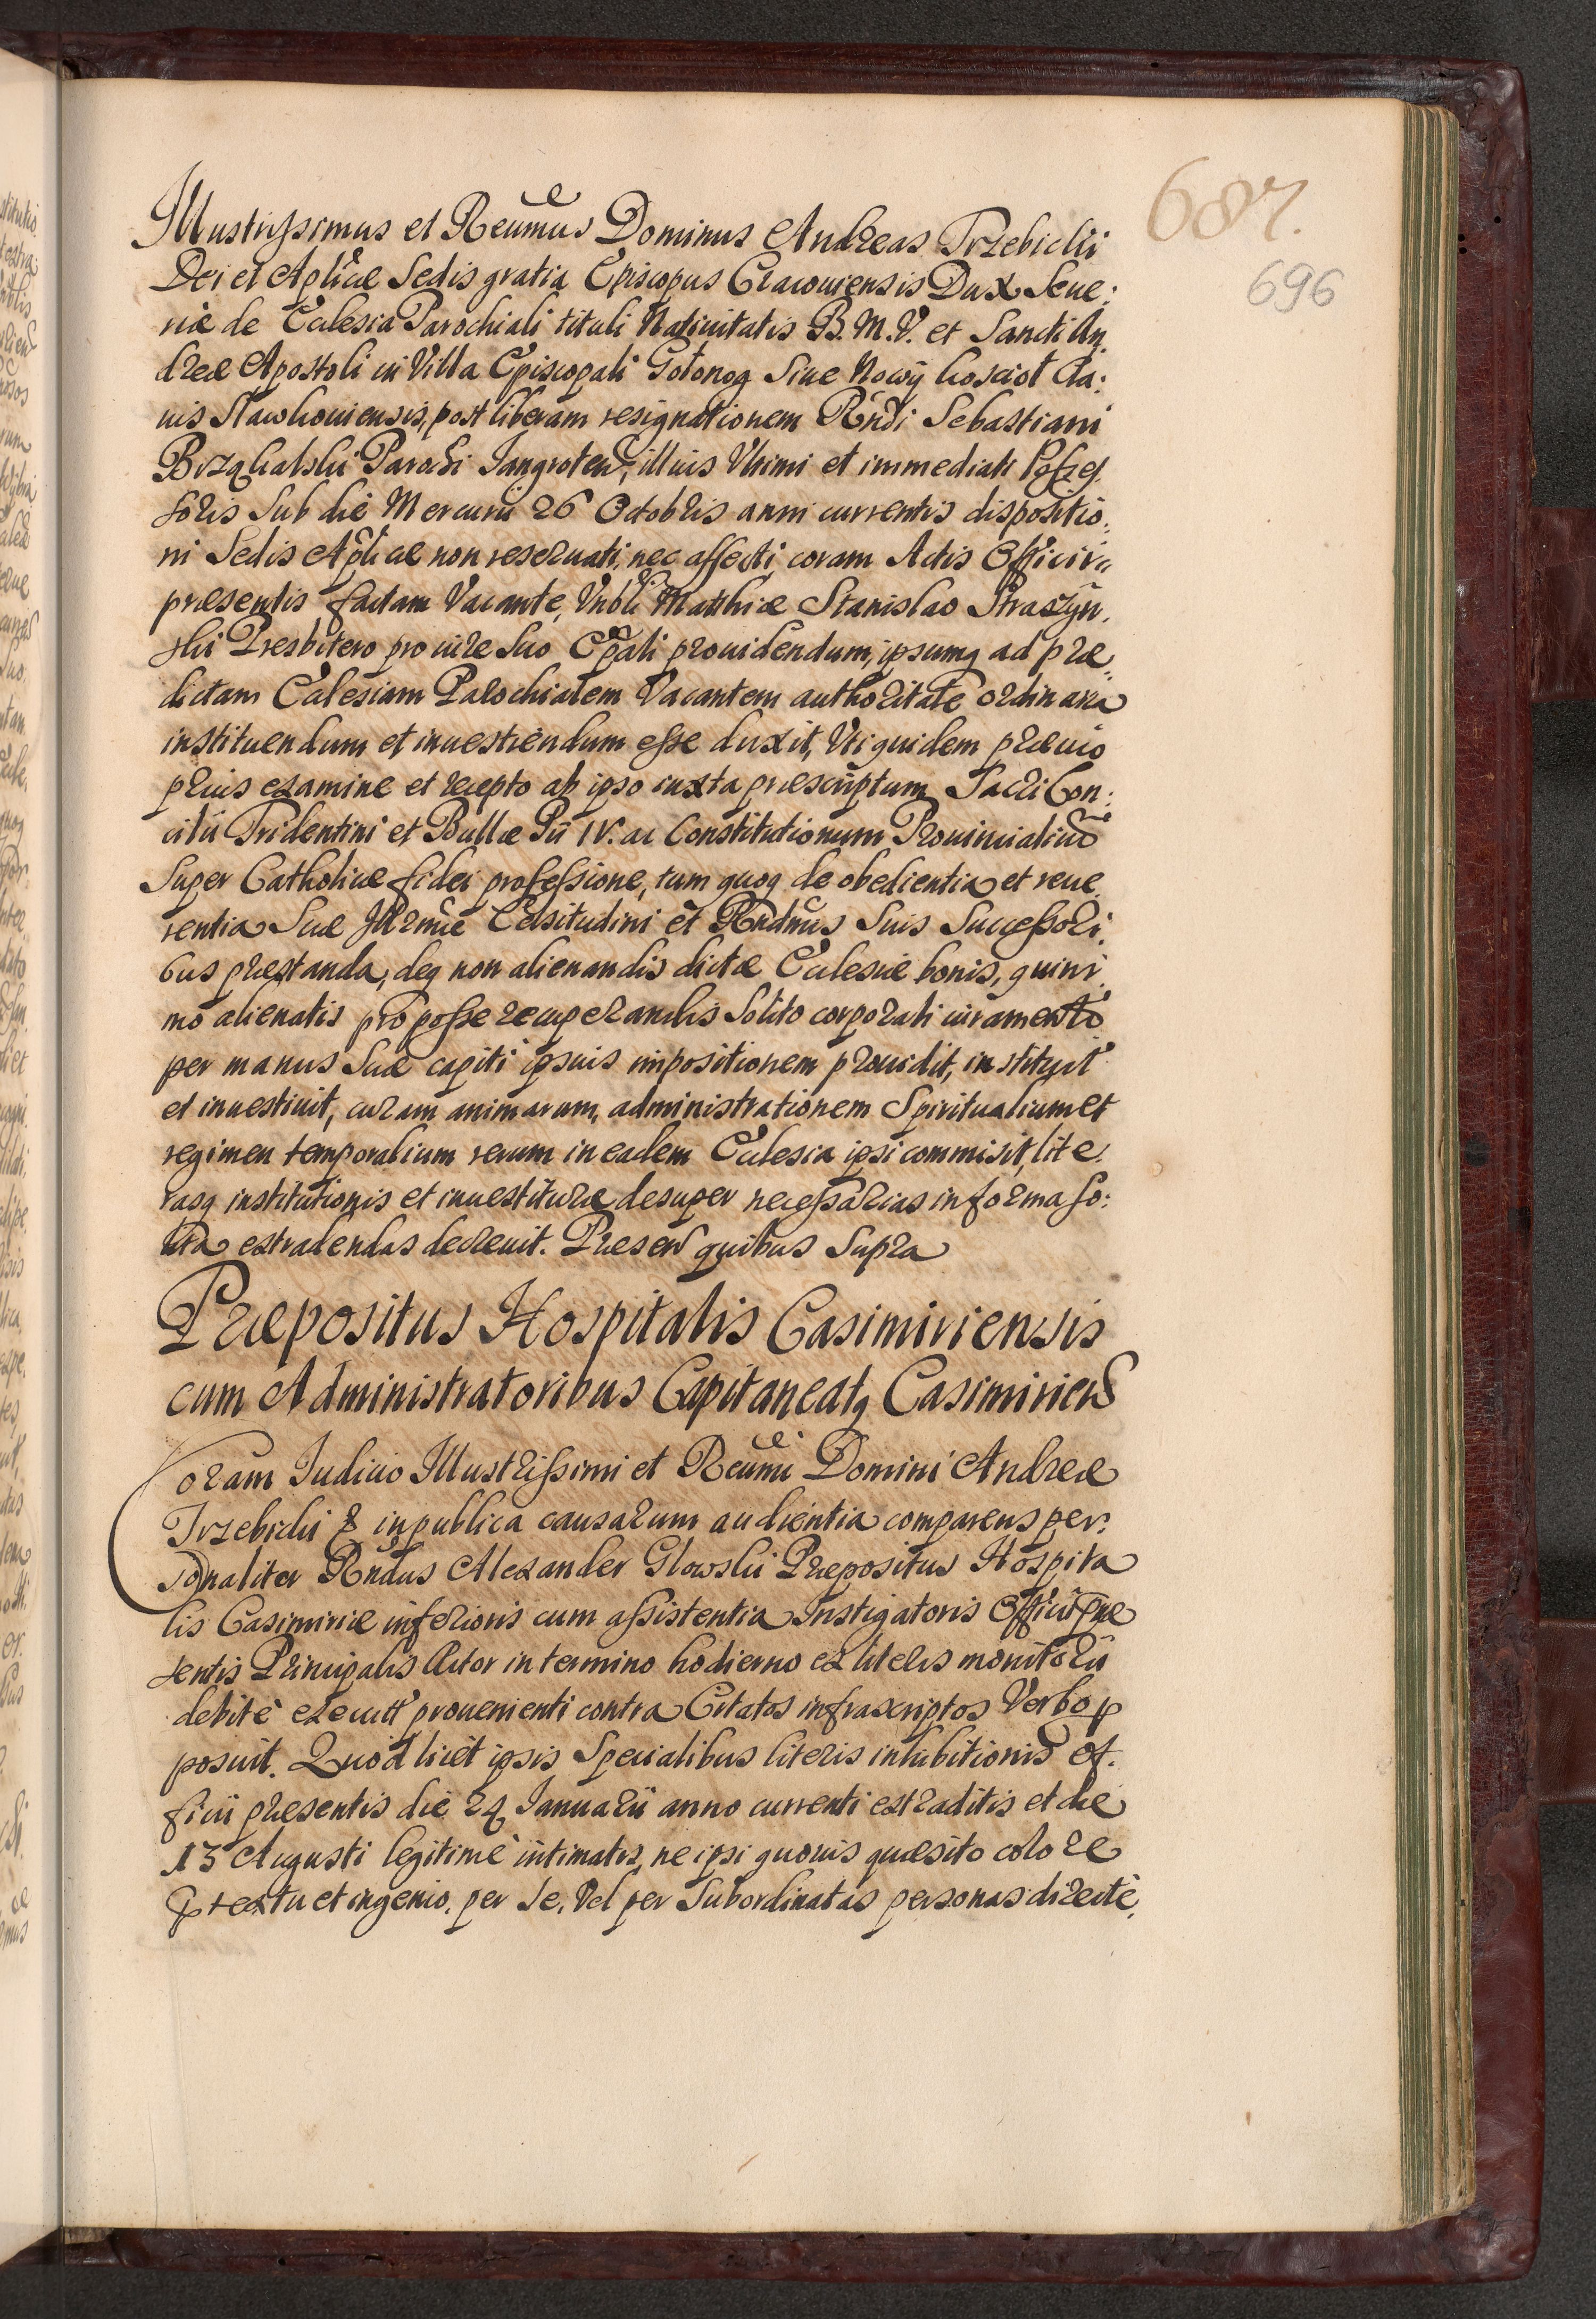 687.
696
Illustrissimus et Reumus Dominus Andreas Trzebicki
Dei et Aplicæ Sedis gratia Episcopus Cracouiensis Dux Seue:
riæ de Ecclesia Parochiali tituli Natiuitatis B. M. V. et Sancti An,
dreæ Apostoli in Villa Episcopali Gołonog Siue Nowÿ kosciół Cla:
uis Sławkouiensis, post liberam resignationem Rndi Sebastiani
Parochi Jangroten, illius Vltimi et immediati Posses,
soris Sub die Mercurii 26 Octobris anni currentis dispositio,
ni Sedis Aplicæ non reseruati, nec affecti, coram Actis Officii
præsentis factam Vacante, Vnbli Matthiæ Stanislao Straszÿn,
ski Presbitero pro iure Suo Epali prouidendum, ipsumq ad præ,
dictam Ecclesiam Parochialem Vacantem authoritate ordinaria
instituendum et inuestiendum esse duxit, Vti quidem præuio
prius examine et recepto ab ipso iuxta præscriptum Sacri Con:
cilii Tridentini et Bullæ Pii IV. ac Constitutionum Prouincialium
Super Catholicæ fidei professione, tum quoq de obedientia et reue,
rentia Suæ Illrmæ Celsitudini et Rndmis Suis Successori,
bus præstanda, deq non alienandis dictæ Ecclesiæ bonis, quini,
mo alienatis pro posse recuperandis Solito corporali iuramento
per manus Suæ capiti ipsius impositionem prouidit, instituit
et inuestiuit, curam animarum, administrationem Spiritualium et
regimen temporalium rerum in eadem Ecclesia ipsi commisit, lite,
rasq institutionis et inuestituræ desuper necessarias in forma so:
lita extradendas decreuit. Præsen quibus Supra
Præpositus Hospitalis Casimiriensis
cum Administratoribus Capitaneatq Casimirien
Coram Iudicio Illustrissimi et Reumi Domini Andreæ
Trzebicki & in publica causarum audientia comparens per:
sonaliter Rndus Alexander Glowski Præpositus Hospita
lis Casimiriæ inferioris cum assistentia Instigatoris Officii præ
sentis Principalis Actor in termino hodierno ex literis monitorii
debitè execut prouenienti contra Citatos infrascriptos Verbo p
posuit. Quod licet ipsis Specialibus literis inhibitionis of,
ficii præsentis die 24 Januarii anno currenti extraditis et die
13 Augusti legitimè intimatis, ne ipsi quouis quæsito colore
prætextu et ingenio, per se, Vel per Subordinatas personas directè,